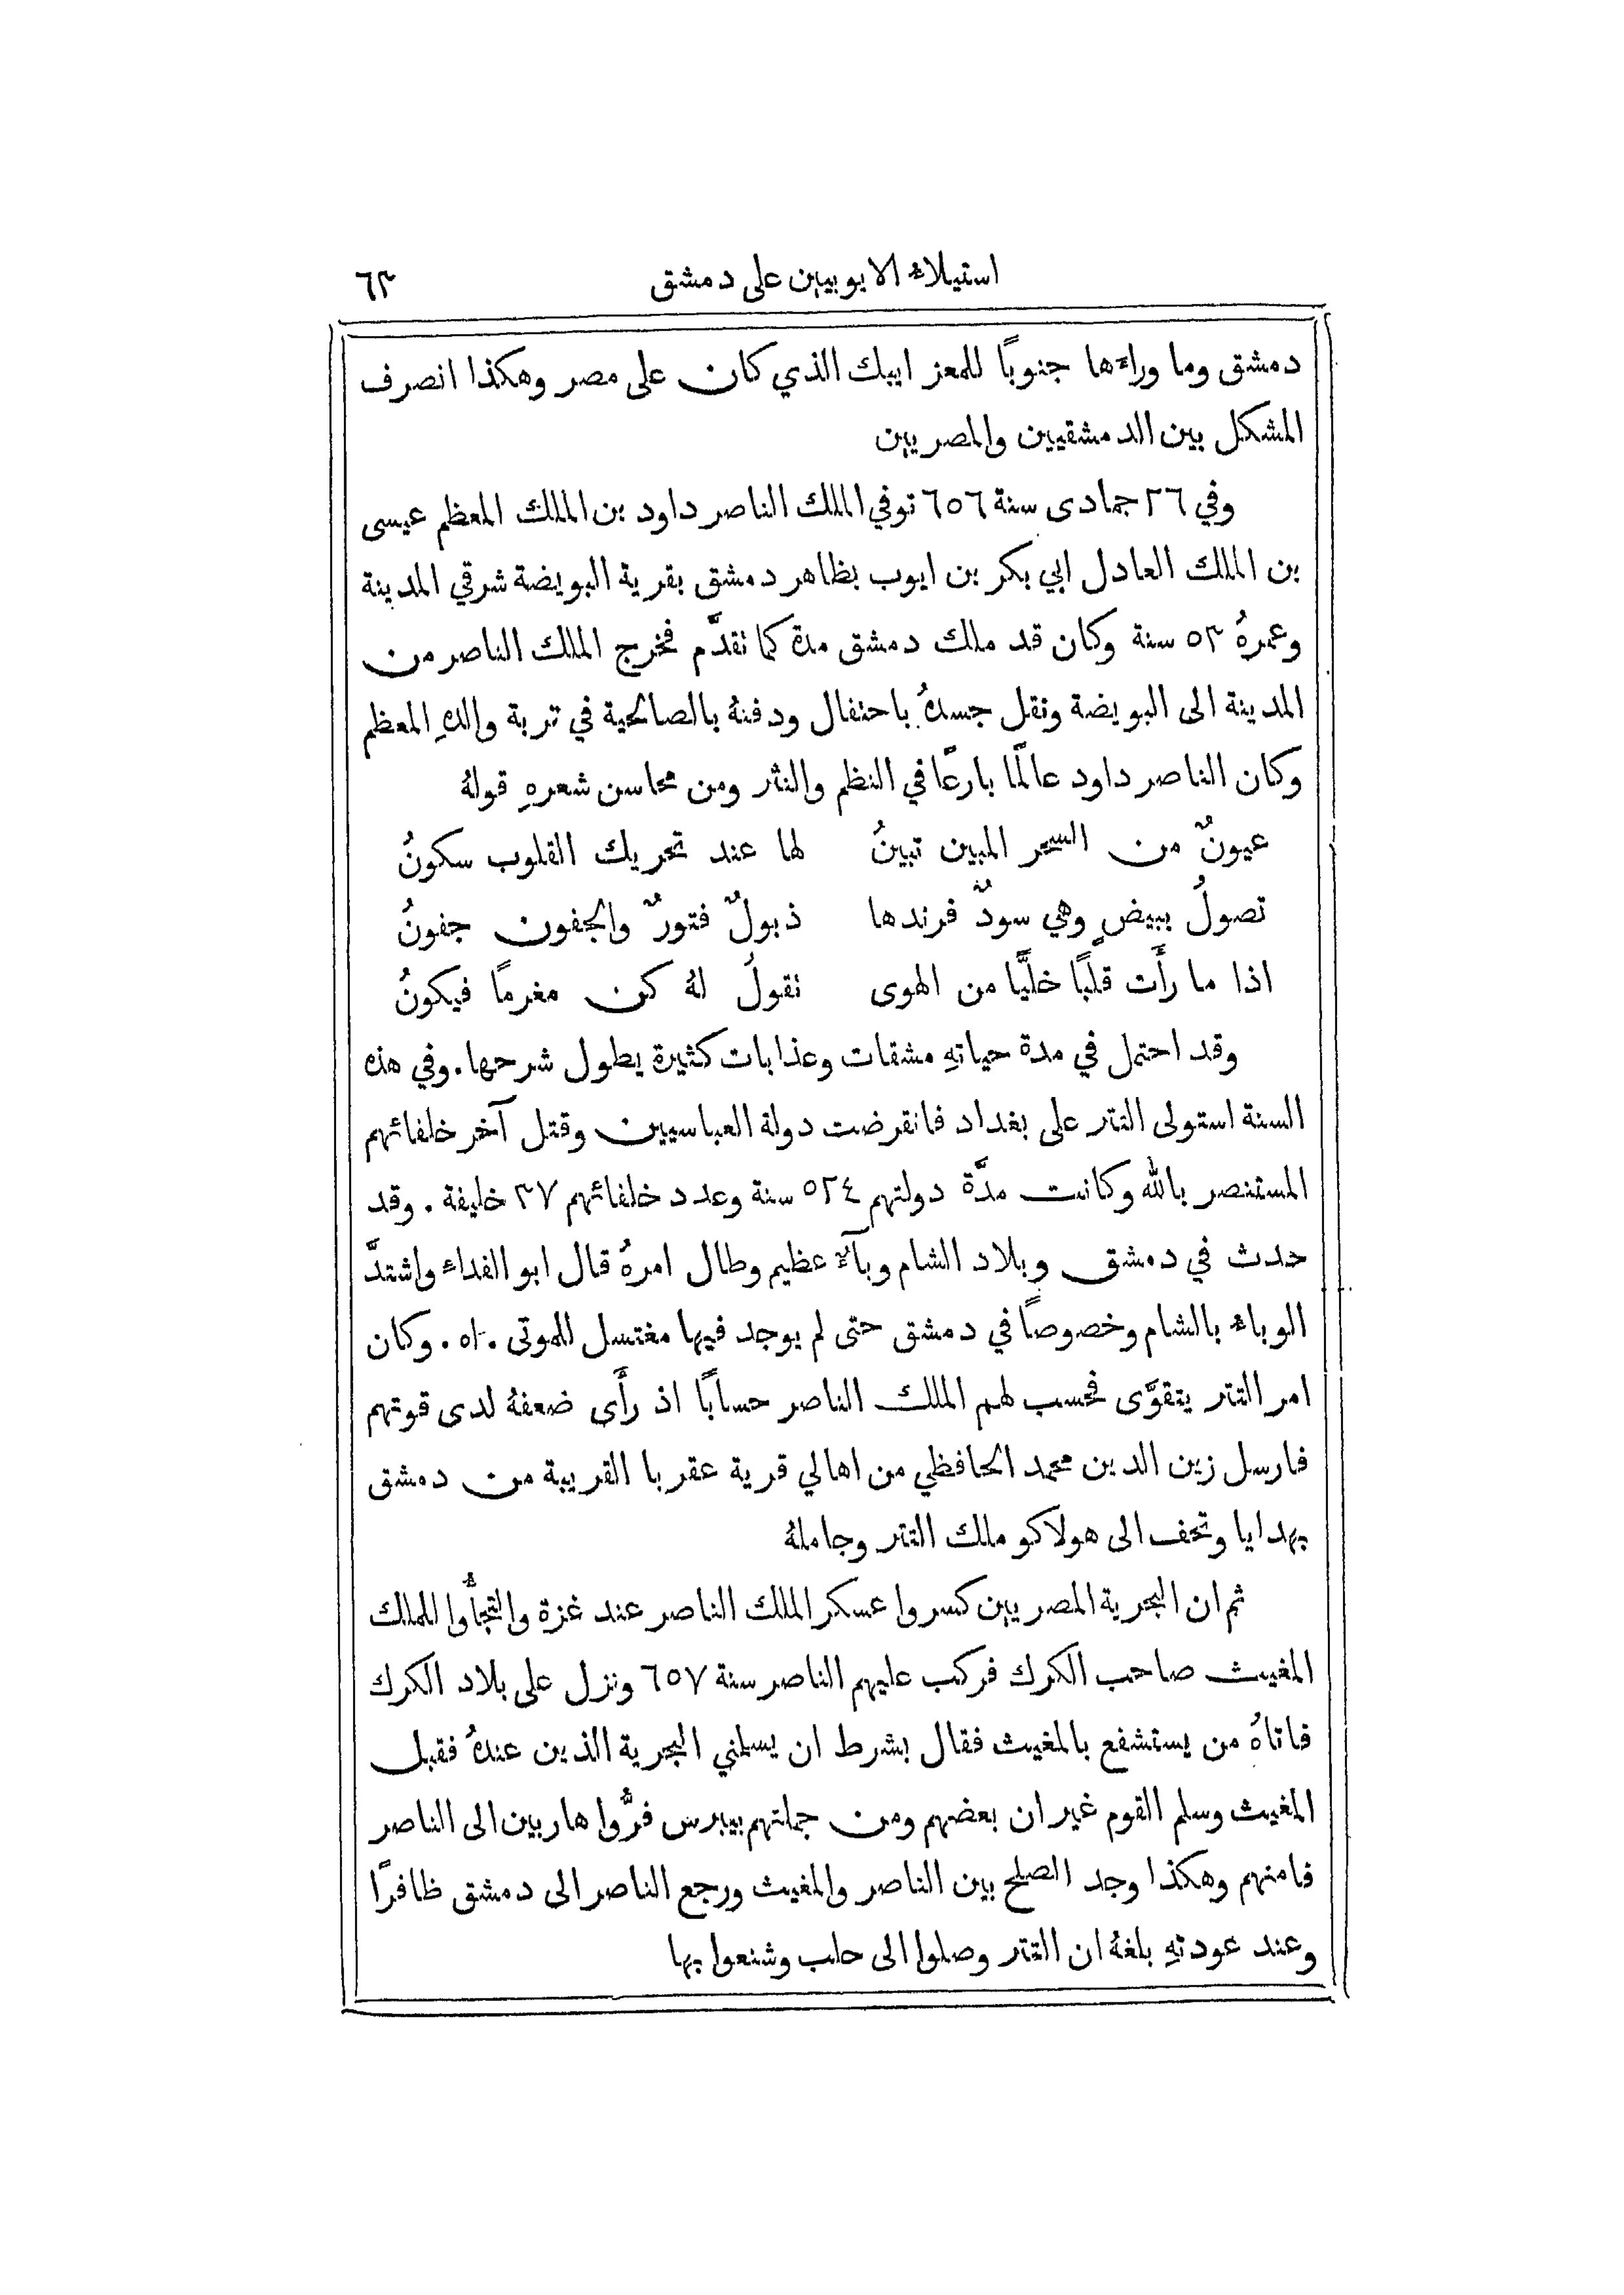 استيلاء الايوبيين على دمشق ٦٣
دمشق وما وراءها جنوبًا للمعز ايبك الذي كان على مصر وهكذا انصرف
المشكل بين الدمشقيين والمصريين
وفي ٢٦ جمادى سنة ٦٥٦ توفي الملك الناصر داود بن الملك المعظم عيسى
بن الملك العادل ابي بكر بن ايوب بظاهر دمشق بقرية البويضة شرقي المدينة
وعمرهُ ٥٣ سنة وكان قد ملك دمشق مدة كما تقدَّم فخرج الملك الناصر من
المدينة الى البويضة ونقل جسدهُ باحتفال ودفنهُ بالصالحية في تربة والدهِ المعظم
وكان الناصر داود عالمًا بارعًا في النظم والنثر ومن محاسن شعرهِ قولهُ
عيونٌ من السحر المبين تبينُ لها عند تحريك القلوب سكونُ
تصولُ ببيضٍ وهي سودٌ فرندها ذبولٌ فتورٌ والجفون جفونُ
اذا ما رأَت قلبًا خليًّا من الهوى تقولُ لهُ كن مغرمًا فيكونُ
وقد احتمل في مدة حياتهِ مشقات وعذابات كثيرة يطول شرحها. وفي هذه
السنة استولى التتر على بغداد فانقرضت دولة العباسيين وقتل آخر خلفائهم
المستنصر بالله وكانت مدَّة دولتهم ٥٢٤ سنة وعدد خلفائهم ٣٧ خليفة. وقد
حدث في دمشق وبلاد الشام وبآءٌ عظيم وطال امرهُ قال ابو الفداء واشتدَّ
الوباء بالشام وخصوصًا في دمشق حتى لم يوجد فيها مغتسل للموتى. اه. وكان
امر التتر يتقوَّى فحسب لهم الملك الناصر حسابًا اذ رأَى ضعفهُ لدى قوتهم
فارسل زين الدين محمد الحافظي من اهالي قرية عقربا القريبة من دمشق
بهدايا وتحف الى هولاكو ملك التتر وجاملهُ
ثم ان البحرية المصريين كسروا عسكر الملك الناصر عند غزة والتجأُوا للملك
المغيث صاحب الكرك فركب عليهم الناصر سنة ٦٥٧ ونزل على بلاد الكرك
فاتاهُ من يستشفع بالمغيث فقال بشرط ان يسلمني البحرية الذين عندهُ فقبل
المغيث وسلم القوم غير ان بعضهم ومن جملتهم بيبرس فرُّوا هاربين الى الناصر
فامنهم وهكذا وجد الصلح بين الناصر والمغيث ورجع الناصر الى دمشق ظافرًا
وعند عودتهِ بلغهُ ان التتر وصلوا الى حلب وشنعوا بها